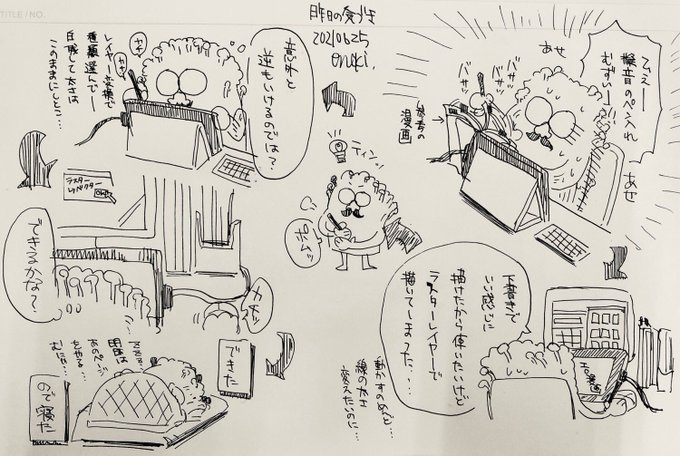 TITLE / NO.
昨日の気づき
20210625
onuki.
ひえー
擬音のペン入れ
むずいー
あせ
あせ
バサ
バサ
バサ
参考の
漫画
下書きで
いい感じに
描けたから使いたいけど
ラスターレイヤーで
描いてしまった・・・
動かすのめんど…
線の太さ
変えたいのに…
ティンッ
ポムッ
意外と
逆もいけるのでは？
カキ
カキ
レイヤー変換で
種類選んでー
圧感して太さは
このままにしとこ…
ラスター
↓ベクター
OK
できるかな？
カチッ
できた
ので寝た
明日は
あのページ
をやる…
むにゃ…